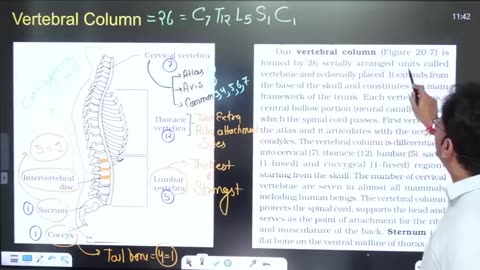 Vertebral Column = 26 = C7 T12 L5 S1 C1
11:42
Cervical vertebra
7
Atlas
Axis
Common 3,4,5,6,7
Thoracic
vertebra
12
Two Extra
Rib attachment
Sites
5=1
Intervertebral
disc
Lumbar
vertebra
5
Thickest
&
Strongest
1 Sacrum
1 Coccyx
Tail bone (4=1)
Our vertebral column (Figure 20.7) is
formed by 26 serially arranged units called
vertebrae and is dorsally placed. It extends from
the base of the skull and constitutes the main
framework of the trunk. Each vertebra
central hollow portion (neural canal)
which the spinal cord passes. First verte
the atlas and it articulates with the occi
condyles. The vertebral column is differentia
into cervical (7), thoracic (12), lumbar (5), sac
(1-fused) and coccygeal (1-fused) regions
starting from the skull. The number of cervical
vertebrae are seven in almost all mammals
including human beings. The vertebral column
protects the spinal cord, supports the head and
serves as the point of attachment for the ribs
and musculature of the back. Sternum
flat bone on the ventral midline of thorax